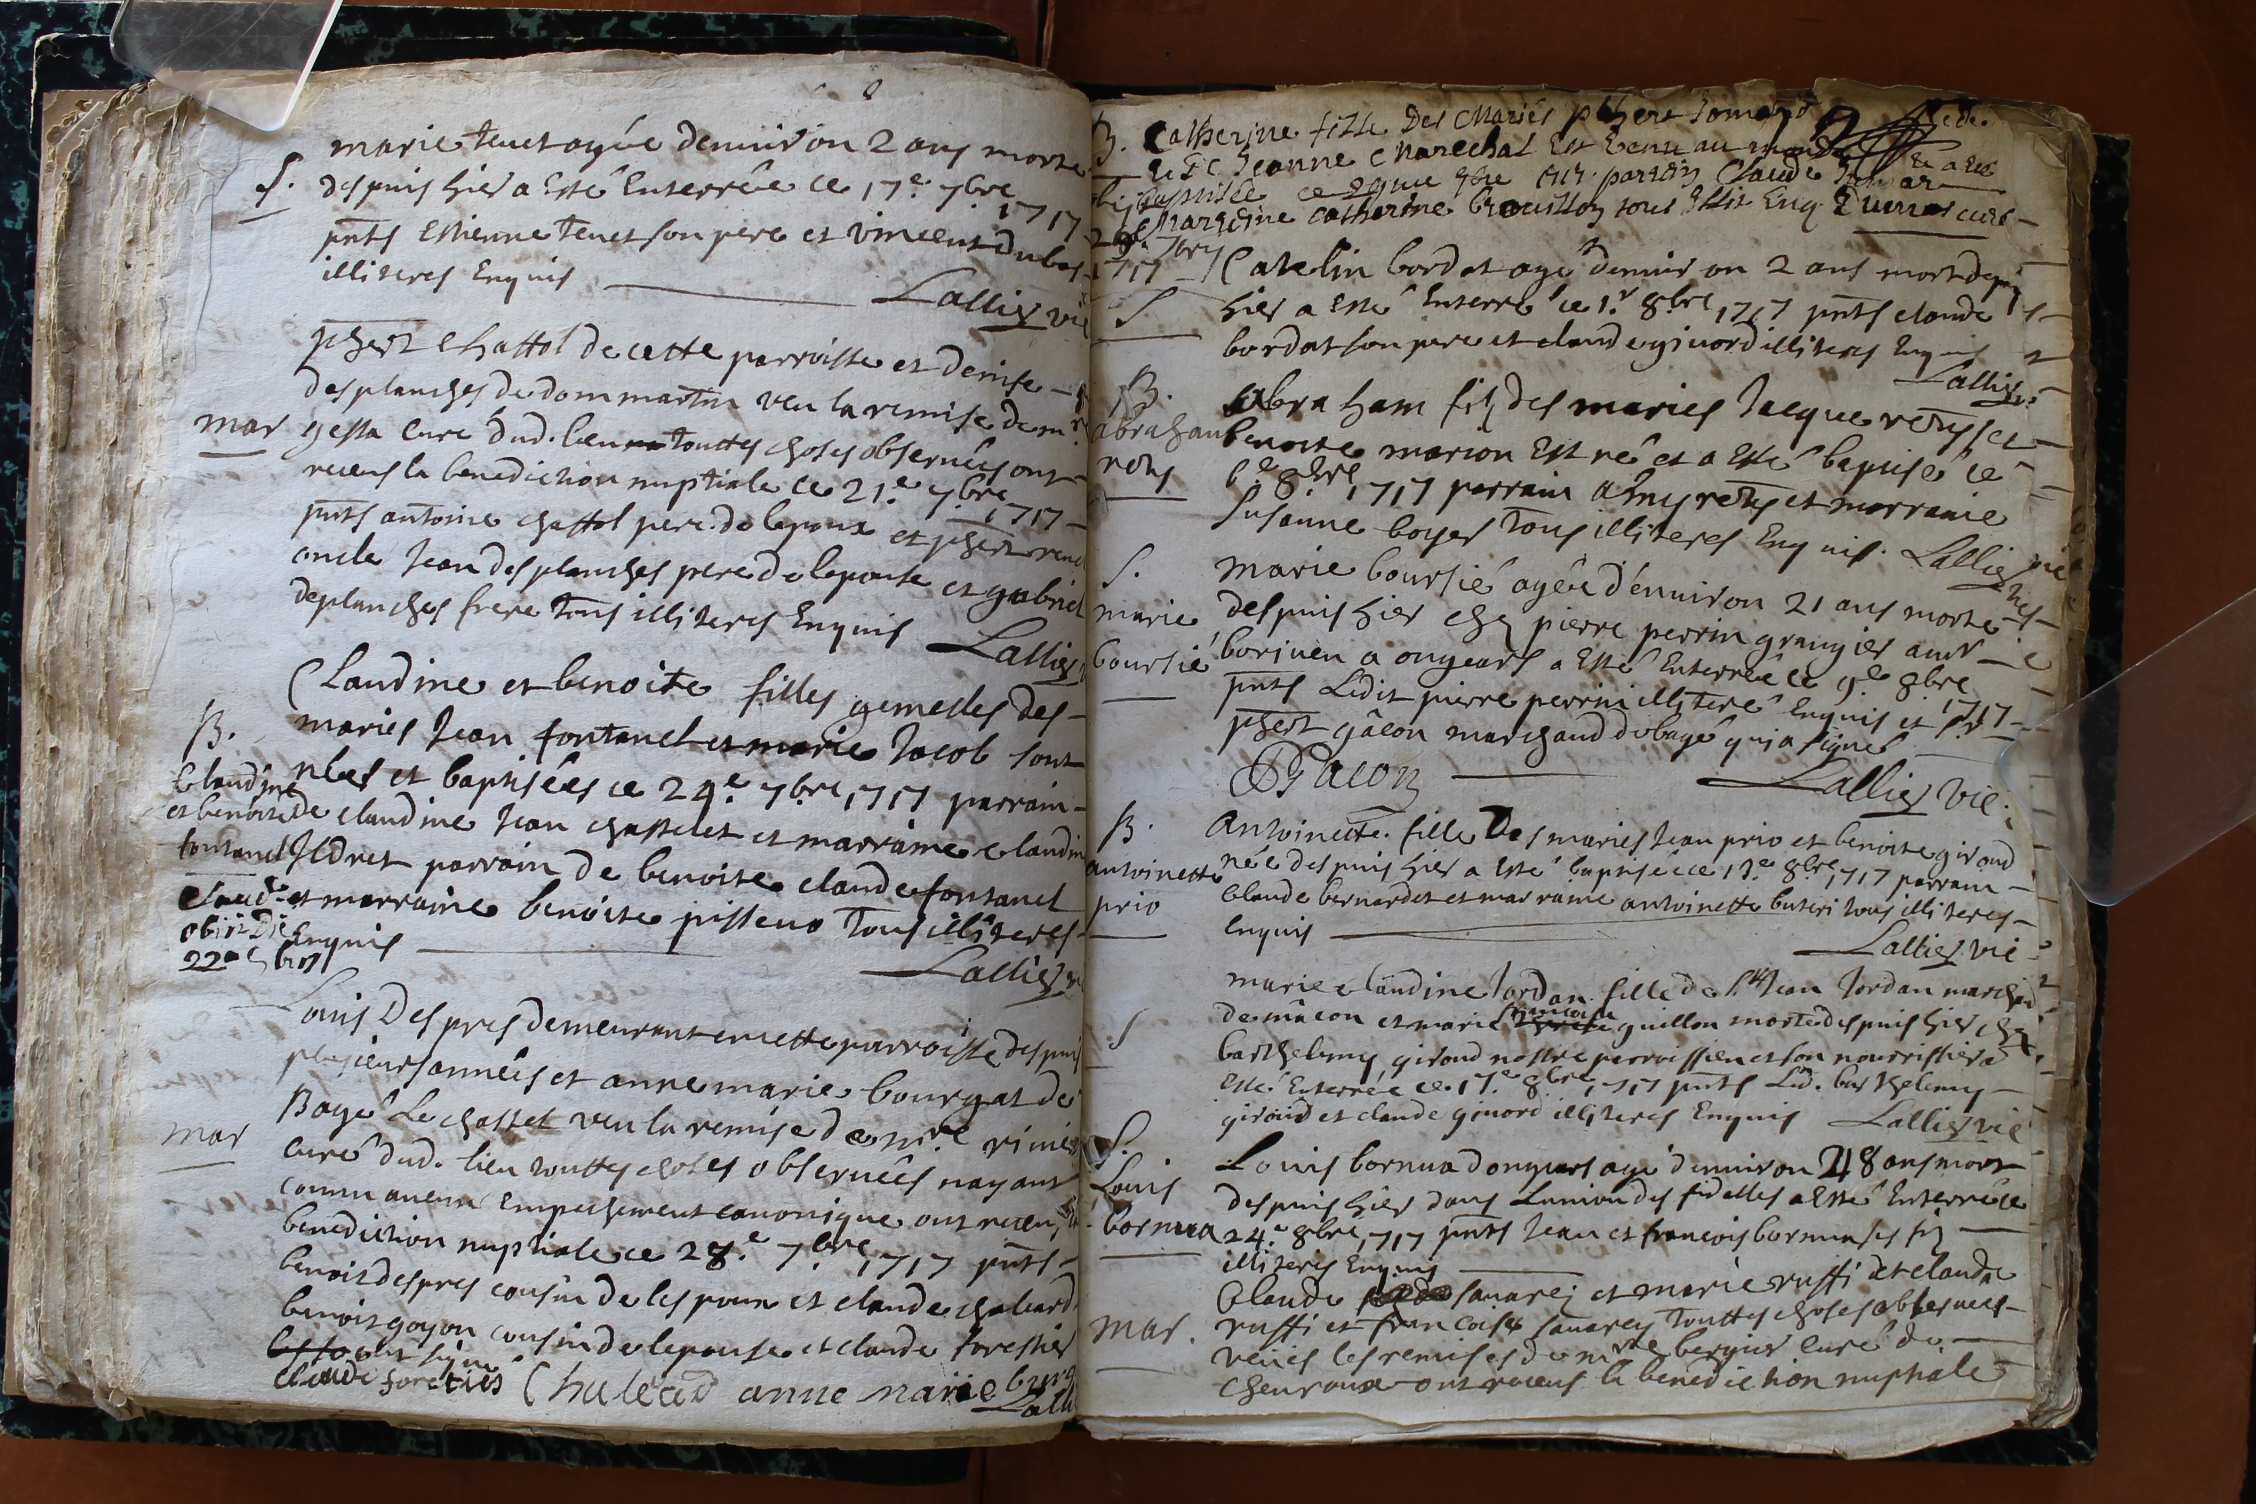 marie tenet agée denuiron 2 ans morte
S. despuis hier a Esté Enterrée ce 17e 7bre 1717
pnts Estienne tenet son pere et vincent dubos
illiteres Enquis Lallier vic
phert Chattol de cette parroisse et denise
desplanches de dommartin veu la remise de mre
mar gesta Curé dud. lieu touttes choses obseruées ont
receus la benediction nuptiale ce 21e 7bre 1717
pnts antoine chattol pere de lepoux et phert
oncle Jean desplanches pere de lepouse et gabriel
deplanches frere tous illiteres Enquis Lallier
Claudine et benoite filles gemelles des
B. maries Jean fontanel et marie Jacob sont
Claudine nées et baptisées ce 24e 7bre 1717 parrain
et benoite de claudine Jean chastelet et marraine claudine
fontanel parrain de benoite claude fontanel
et marraine benoite pisseuo tous illiteres
obiit Die Enquis
22a
Lallier
Louis Despres demeurant en cette parroisse despuis
plusieurs années et anne marie bourgat de
Bagé Le chattel veu la remise de mre
mar curé dud. lieu touttes choses obseruées nayant
connu aucun Empechement canonique ont receu la
benediction nuptiale ce 28e 7bre 1717 pnts
benoit despres cousin de lespoux et claude chaleard
benoit goyon cousin de lepouse et claude forestier
ont signé
claude foretiés Chaleard anne marie burg
Lalli
B. Catherine fille Des Mariés phert
Jeanne Marechal Est venue au monde et a été
baptisée ce parrin Claude
Marrine catherine brouillon tous Enq. curé
1717
Catelin bordat agé denuiron 2 ans mort depuis
S hier a Esté Enterré ce 1r 8bre 1717 pnts claude
bordat son pere et claude ginord illiteres Enquis
Lallier
B. abraham filz des maries Jacque retys et
abraham benoite marion Est né et a Esté baptisé le
retys 8bre 1717 parrain retys et marraine
Susanne boyer tous illiteres Enquis. Lallier vic
S. marie boursié agée denuiron 21 ans morte
marie despuis hier chez pierre perrin grangier au
boursié a ongears a Esté Enterrée ce 9e 8bre 1717
pnts Ledit pierre perrin illiteré Enquis et Sr
phert gâcon marchand de bagé qui a signé
Gacon Lallier vic.
B. Antoinette fille Des maries Jean prio et benoite giroud
antoinette née despuis hier a Esté baptisée ce 13e 8bre 1717 parrain
prio Claude bernardet et marraine antoinette buteri tous illiteres
Enquis
Lallier vic
marie claudine Jordan fille de Sr Jean Jordan marchand
de mâcon et marie françoise guillon morte despuis hier chez
S barthelemy giroud nostre parroissien et son nourrissier a
Esté Enterrée ce 17e 8bre 1717 pnts Led. barthelemy
giroud et claude ginord illiteres Enquis Lallier vic
S. Louis bornua dongears agé denuiron 48 ans mort
Louis despuis hier dans Lunion des fidelles a Esté Enterré ce
bornua 24e 8bre 1717 pnts Jean et francois bornua ses filz
illiteres Enquis
Claude sauarej et marie ruffi et claude
mar. ruffi et francoise sauarey touttes choses obseruées
veües les remises de mre bergier curé de
cheuroux ont receus la benediction nuptiale